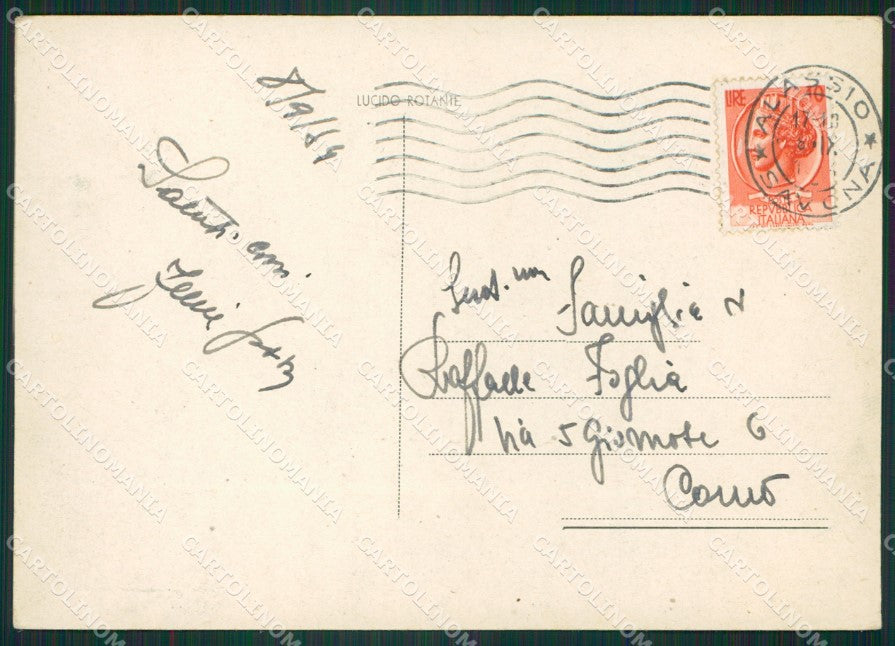 8/9/54
Saluti cari
LUCIDO ROTANTE
LIRE 10
REPVBBLICA
ITALIANA
ALASSIO
SAVONA
17-18
Famiglia
Raffaele Foglia
Via 5 Giornate 6
Como
CARTOLINOMANIA